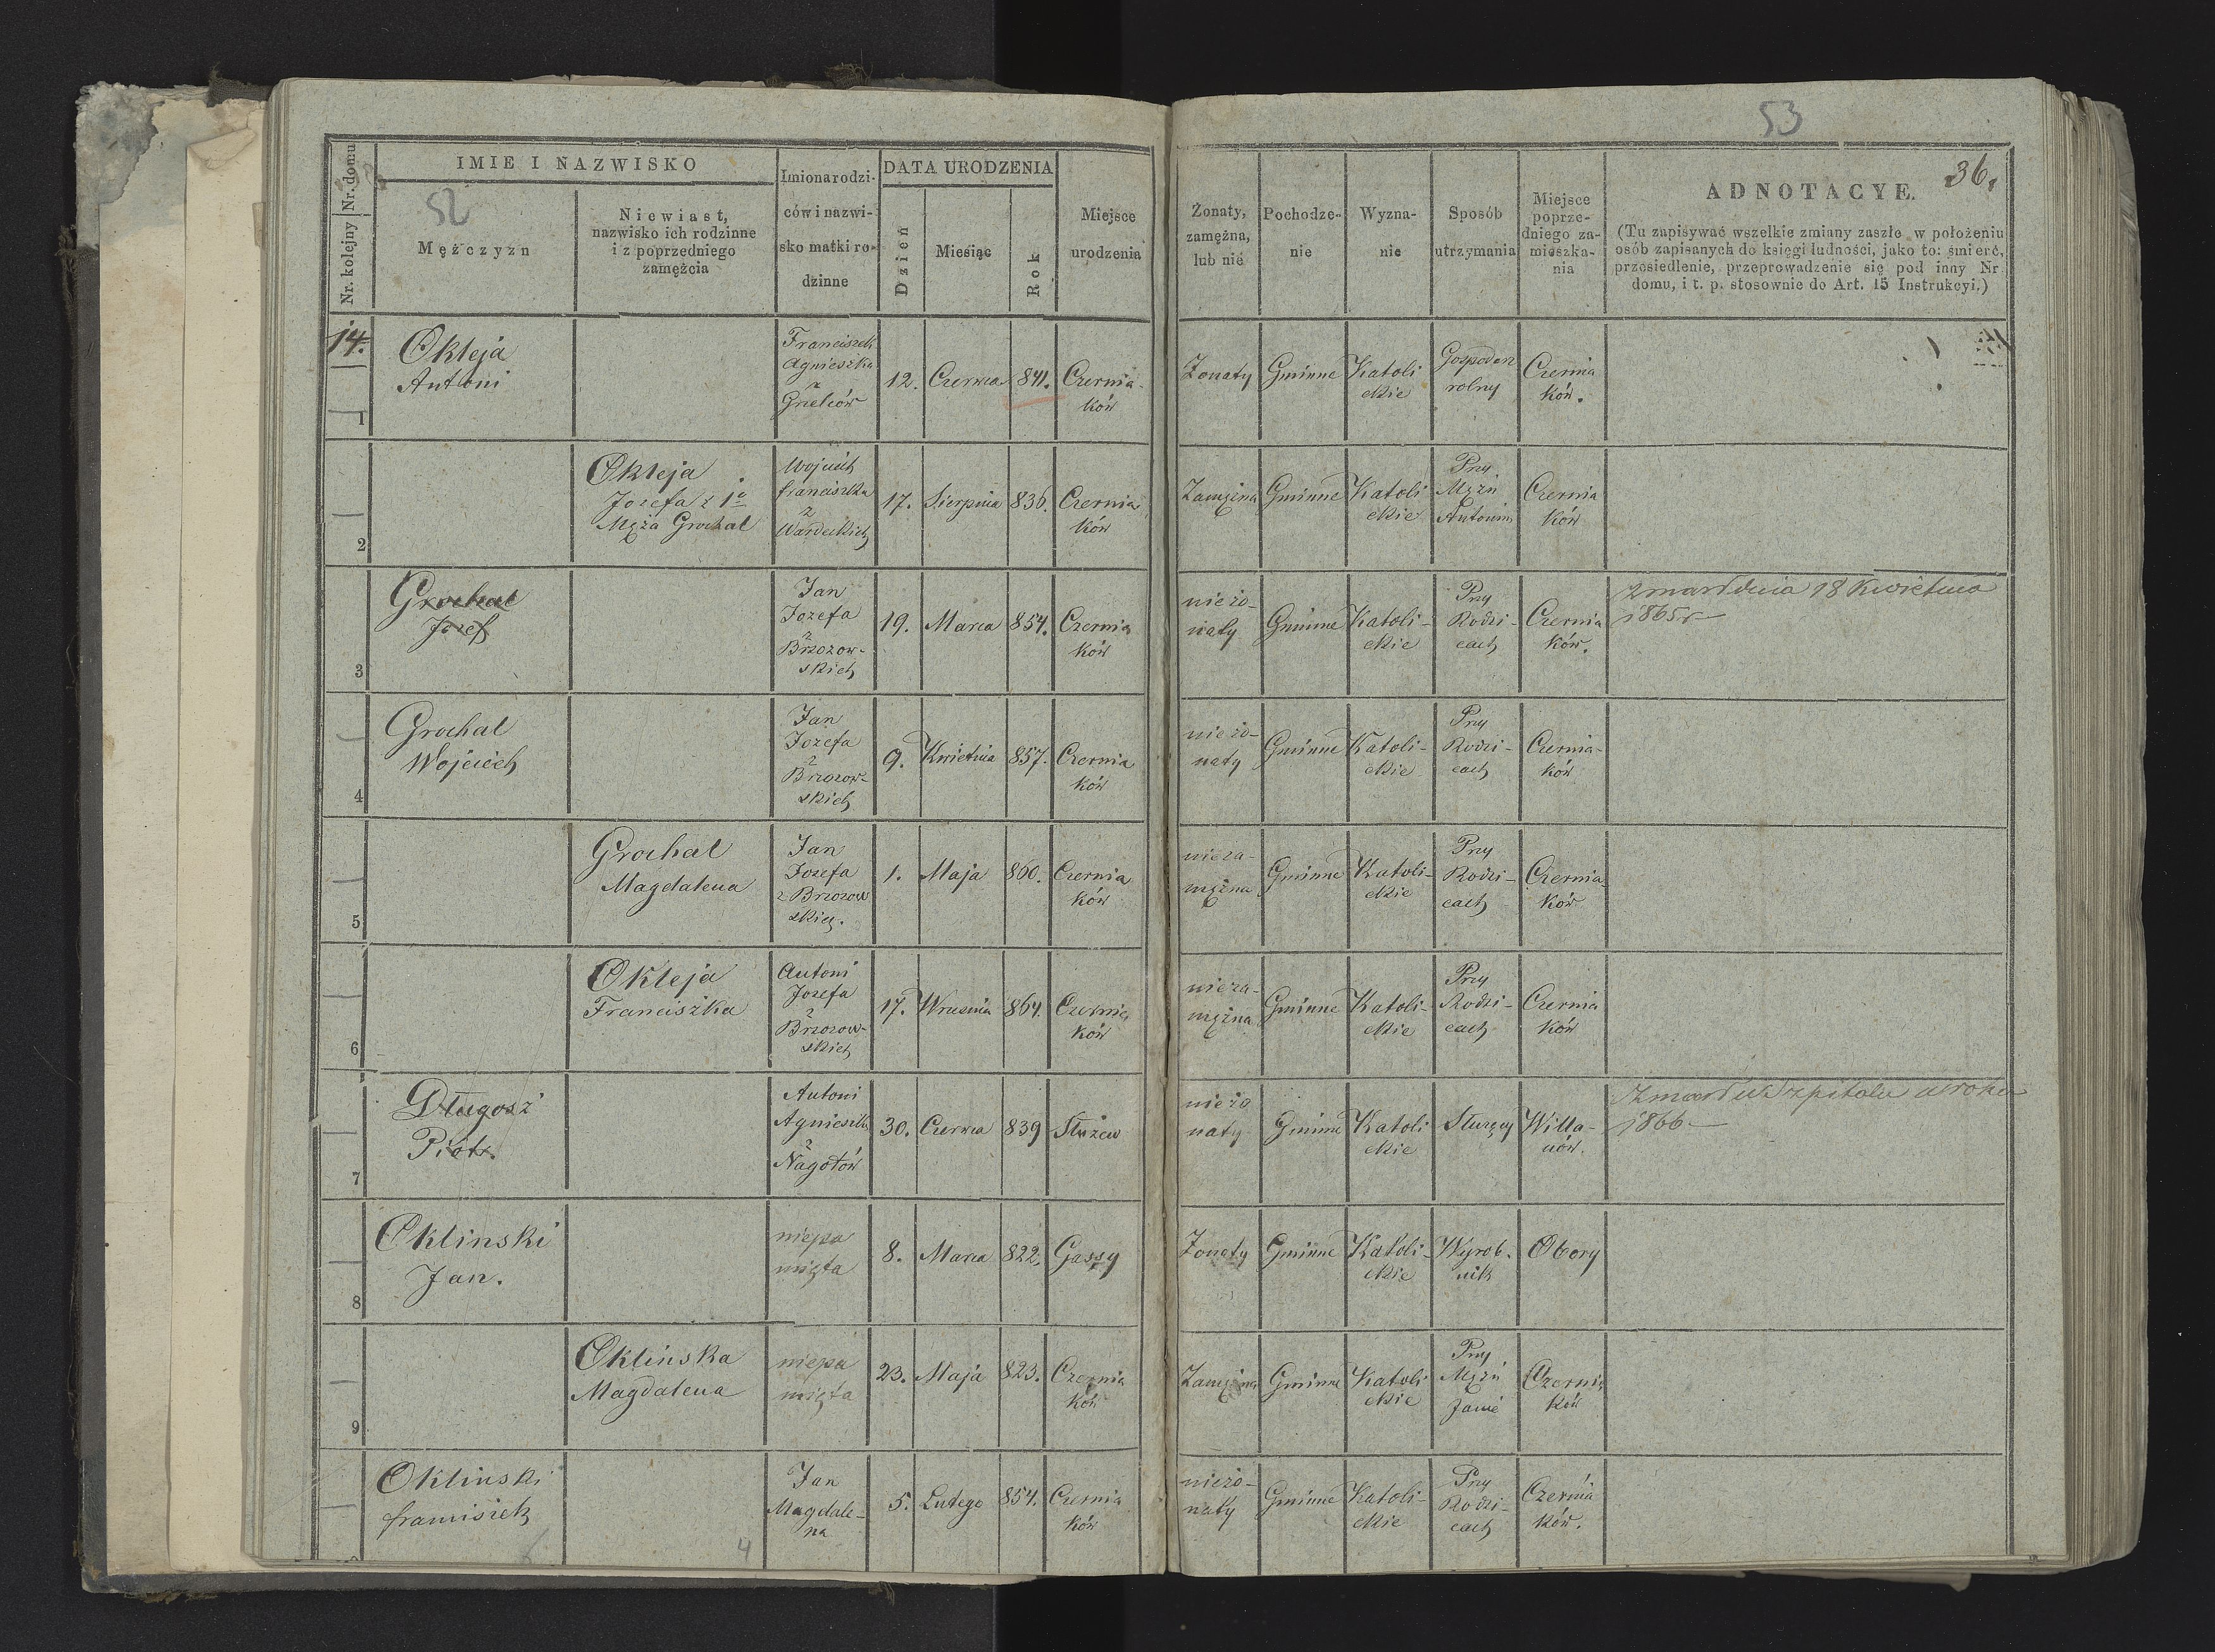 53
36.
52
Nr. domu
Nr. kolejny
IMIE I NAZWISKO
Mężczyzn
Niewiast,
nazwisko ich rodzinne
i z poprzedniego
zamężcia
Imiona rodzi-
ców i nazwi-
sko matki ro-
dzinne
DATA URODZENIA
Dzień
Miesiąc
Rok
Miejsce
urodzenia
Żonaty,
zamężna,
lub nié
Pochodze-
nie
Wyzna-
nie
Sposób
utrzymania
Miejsce
poprze-
dniego za-
mieszka-
nia
ADNOTACYE.
(Tu zapisywać wszelkie zmiany zaszłe w położeniu
osób zapisanych do księgi ludności, jako to: śmierć,
przesiedlenie, przeprowadzenie się pod inny Nr
domu, i t. p. stosownie do Art. 15 Instrukcyi.)
14.
1
Okleja
Antoni
Franciszek
Agnieszka
z
12.
Czerwca
841.
Czernia-
ków
Żonaty
Gminne
Katoli
ckie
Gospodarz
rolny
Czernia
ków.
2
Okleja
Jozefa z 1o
Męża Grochal
Wojciéch
franciszka
z
Wardeckich
17.
Sierpnia
836.
Czernia
ków
Zamężna
Gminne
Katoli
ckie
Przy
Mężu
Antonim
Czernia
ków
3
Grochal
Jozef
Jan
Jozefa
z
Brzozow-
skich
19.
Marca
854.
Czernia
ków
nieżo-
naty
Gminne
Katoli-
ckie
Przy
Rodzi-
cach
Czernia
ków.
zmarł dnia 18 Kwietnia
1865 r
4
Grochal
Wojciéch
Jan
Jozefa
z
Brzozow-
skich
9.
Kwietnia
857.
Czernia
ków
nieżo-
naty
Gminne
Katoli-
ckie
Przy
Rodzi-
cach
Czernia-
ków
5
Grochal
Magdalena
Jan
Jozefa
z Brzozow
skich.
1.
Maja
860.
Czernia
ków
nieza-
mężna
Gminne
Katoli-
ckie
Przy
Rodzi-
cach
Czernia-
ków
6
Okleja
Franciszka
Antoni
Jozefa
z
Brzozow-
skich
17.
Września
864.
Czernia
ków
nieza-
mężna
Gminne
Katoli-
ckie
Przy
Rodzi-
cach
Czernia
ków
7
Długosz
Piotr.
Antoni
Agnieszka
z
Nagotów
30.
Czerwca
839
Służew
nieżo
naty
Gminne
Katoli
ckie
Służący
Willa-
nów.
Zmarł w Szpitalu w roku
1866
8
Oklinski
Jan.
niepa
mięta
8.
Marca
822.
Gassy
Żonaty
Gminne
Katoli-
ckie
Wyrob-
nik
Obory
9
Oklińska
Magdalena
niepa
mięta
23.
Maja
823.
Czernia
ków
Zamężna
Gminne
Katoli
ckie
Przy
Mężu
Janie
Czernia
ków
Oklinski
franciszek
Jan
Magdale-
na
5.
Lutego
854.
Czernia
ków
nieżo-
naty
Gminne
Katoli-
ckie
Przy
Rodzi-
cach
Czernia
ków.
4